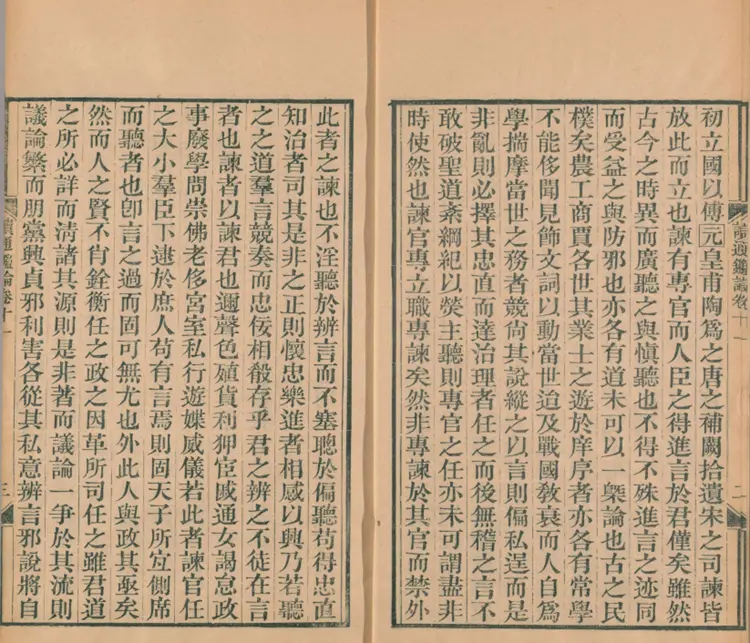 初立國以傅元皇甫陶爲之唐之補闕拾遺宋之司諫皆
放此而立也諫有專官而人臣之得進言於君僅矣雖然
古今之時異而廣聽之與愼聽也不得不殊進言之迹同
而受益之與防邪也亦各有道未可以一槩論也古之民
樸矣農工商賈各世其業士之遊於庠序者亦各有常學
不能侈聞見飾文詞以動當世迨及戰國敎衰而人自爲
學揣摩當世之務者競尙其說縱之以言則偏私逞而是
非亂則必擇其忠直而達治理者任之而後無稽之言不
敢破聖道紊綱紀以熒主聽則專官之任亦未可謂盡非
時使然也諫官專立職專諫矣然非專諫於其官而禁外
讀通鑑論卷十一
二
此者之諫也不淫聽於辨言而不塞聰於偏聽苟得忠直
知治者司其是非之正則懷忠樂進者相感以興乃若聽
之之道羣言競奏而忠佞相殽存乎君之辨之不徒在言
者也諫者以諫君也邇聲色殖貨利狎宦戚通女謁怠政
事廢學問崇佛老侈宮室私行遊媟威儀若此者諫官任
之大小羣臣下逮於庶人苟有言焉則固天子所宜側席
而聽者也卽言之過而固可無尤也外此人與政其亟矣
然而人之賢不肖銓衡任之政之因革所司任之雖君道
之所必詳而清諸其源則是非著而議論一爭於其流則
議論繁而朋黨興貞邪利害各從其私意辨言邪說將自
讀通鑑論卷十一
三